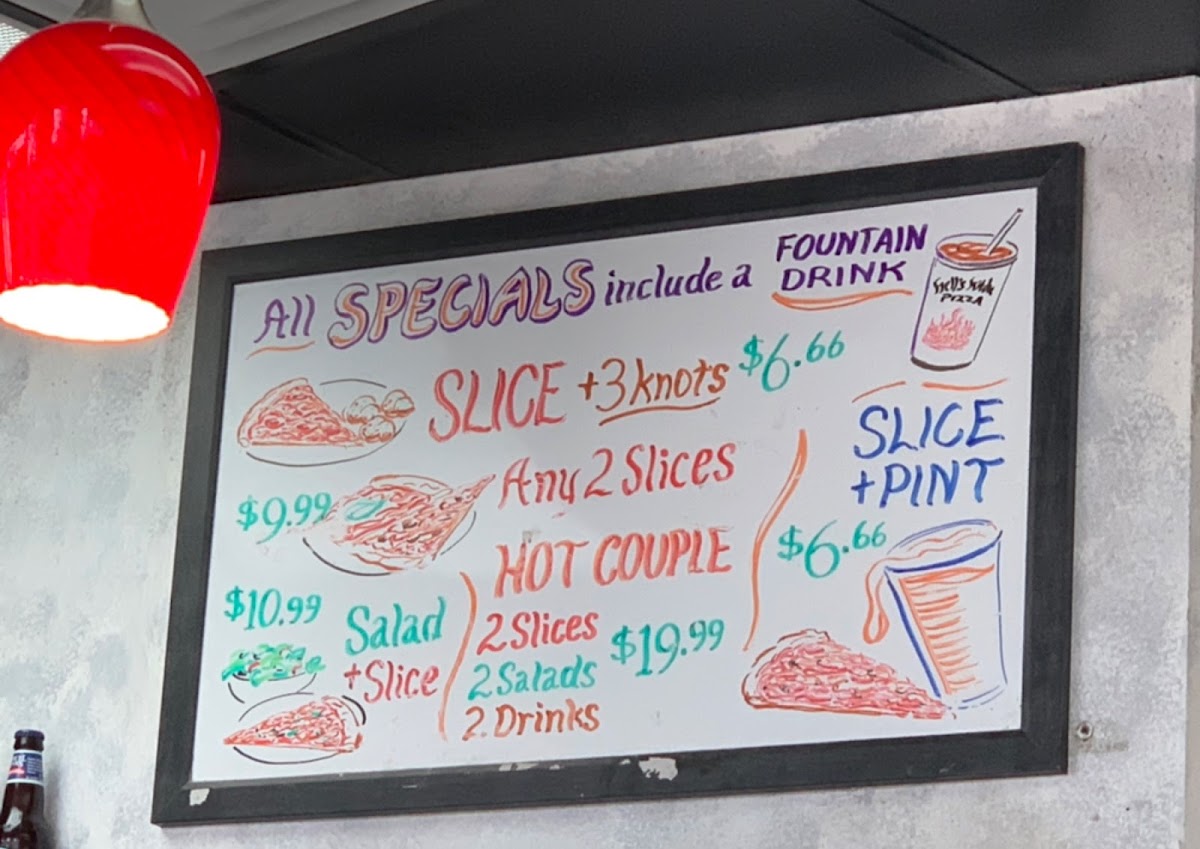 All SPECIALS include a FOUNTAIN
DRINK
PIZZA
SLICE +3 knots $6.66
SLICE
+PINT
$6.66
Any 2 Slices
$9.99
HOT COUPLE
2 Slices
2 Salads
2. Drinks
$19.99
$10.99
Salad
+Slice